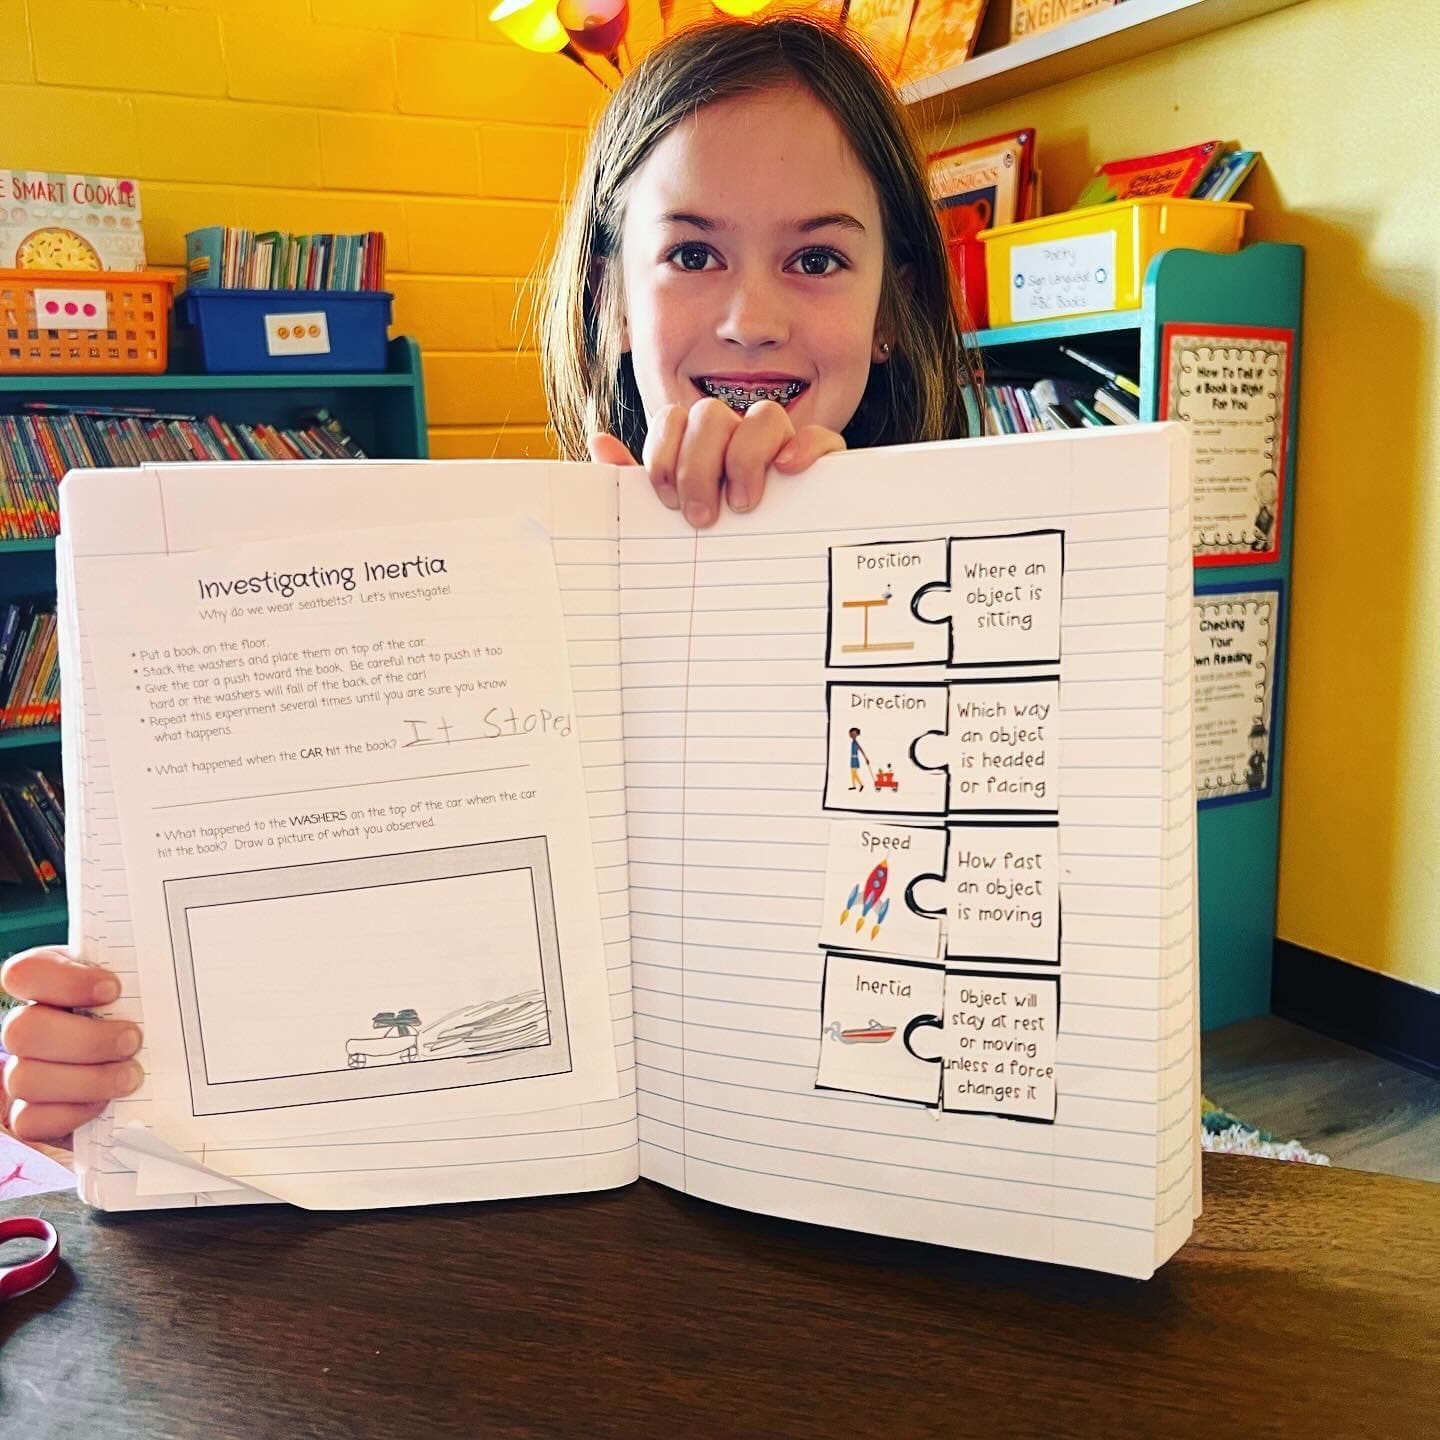 E SMART COOKIE
ENGINEER
Poetry
Sign Language
ABC Books
How To Tell if
a Book is Right
For You
Checking
Your
wn Reading
Investigating Inertia
Why do we wear seatbelts? Let's investigate!
* Put a book on the floor.
* Stack the washers and place them on top of the car.
* Give the car a push toward the book. Be careful not to push it too
hard or the washers will fall of the back of the car!
* Repeat this experiment several times until you are sure you know
what happens.
* What happened when the CAR hit the book? It Stoped
* What happened to the WASHERS on the top of the car when the car
hit the book? Draw a picture of what you observed.
Position
Where an
object is
sitting
Direction
Which way
an object
is headed
or facing
Speed
How fast
an object
is moving
Inertia
Object will
stay at rest
or moving
unless a force
changes it